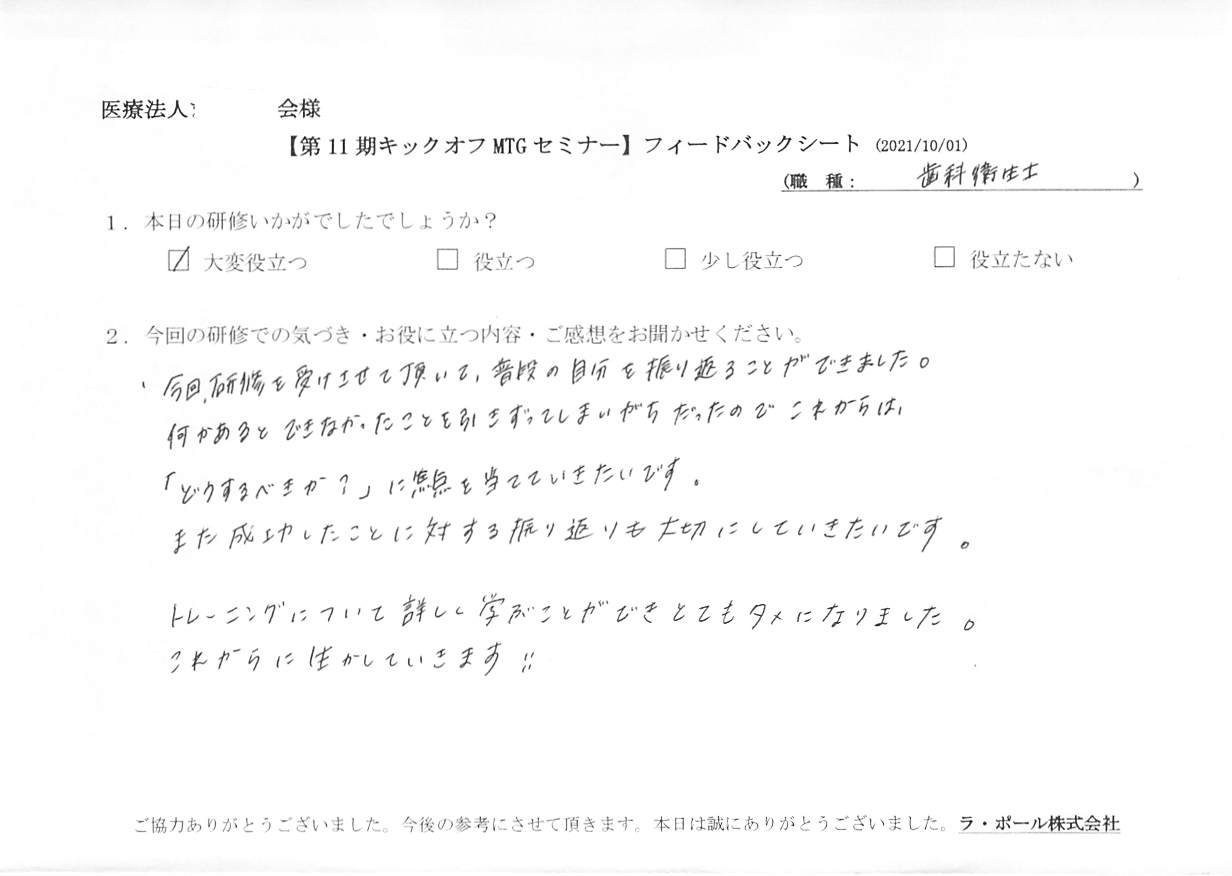 医療法人 会様
【第11期キックオフMTGセミナー】フィードバックシート (2021/10/01)
(職 種: 歯科衛生士 )
1. 本日の研修いかがでしたでしょうか?
☑ 大変役立つ □ 役立つ □ 少し役立つ □ 役立たない
2. 今回の研修での気づき・お役に立つ内容・ご感想をお聞かせください。
今回、研修を受けさせて頂いて、普段の自分を振り返ることができました。
何かあるとできなかったことを引きずってしまいがちだったのでこれからは、
「どうするべきか?」に焦点を当てていきたいです。
また成功したことに対する振り返りも大切にしていきたいです。
トレーニングについて詳しく学ぶことができとてもタメになりました。
これからに生かしていきます!!
ご協力ありがとうございました。今後の参考にさせて頂きます。本日は誠にありがとうございました。ラ・ポール株式会社